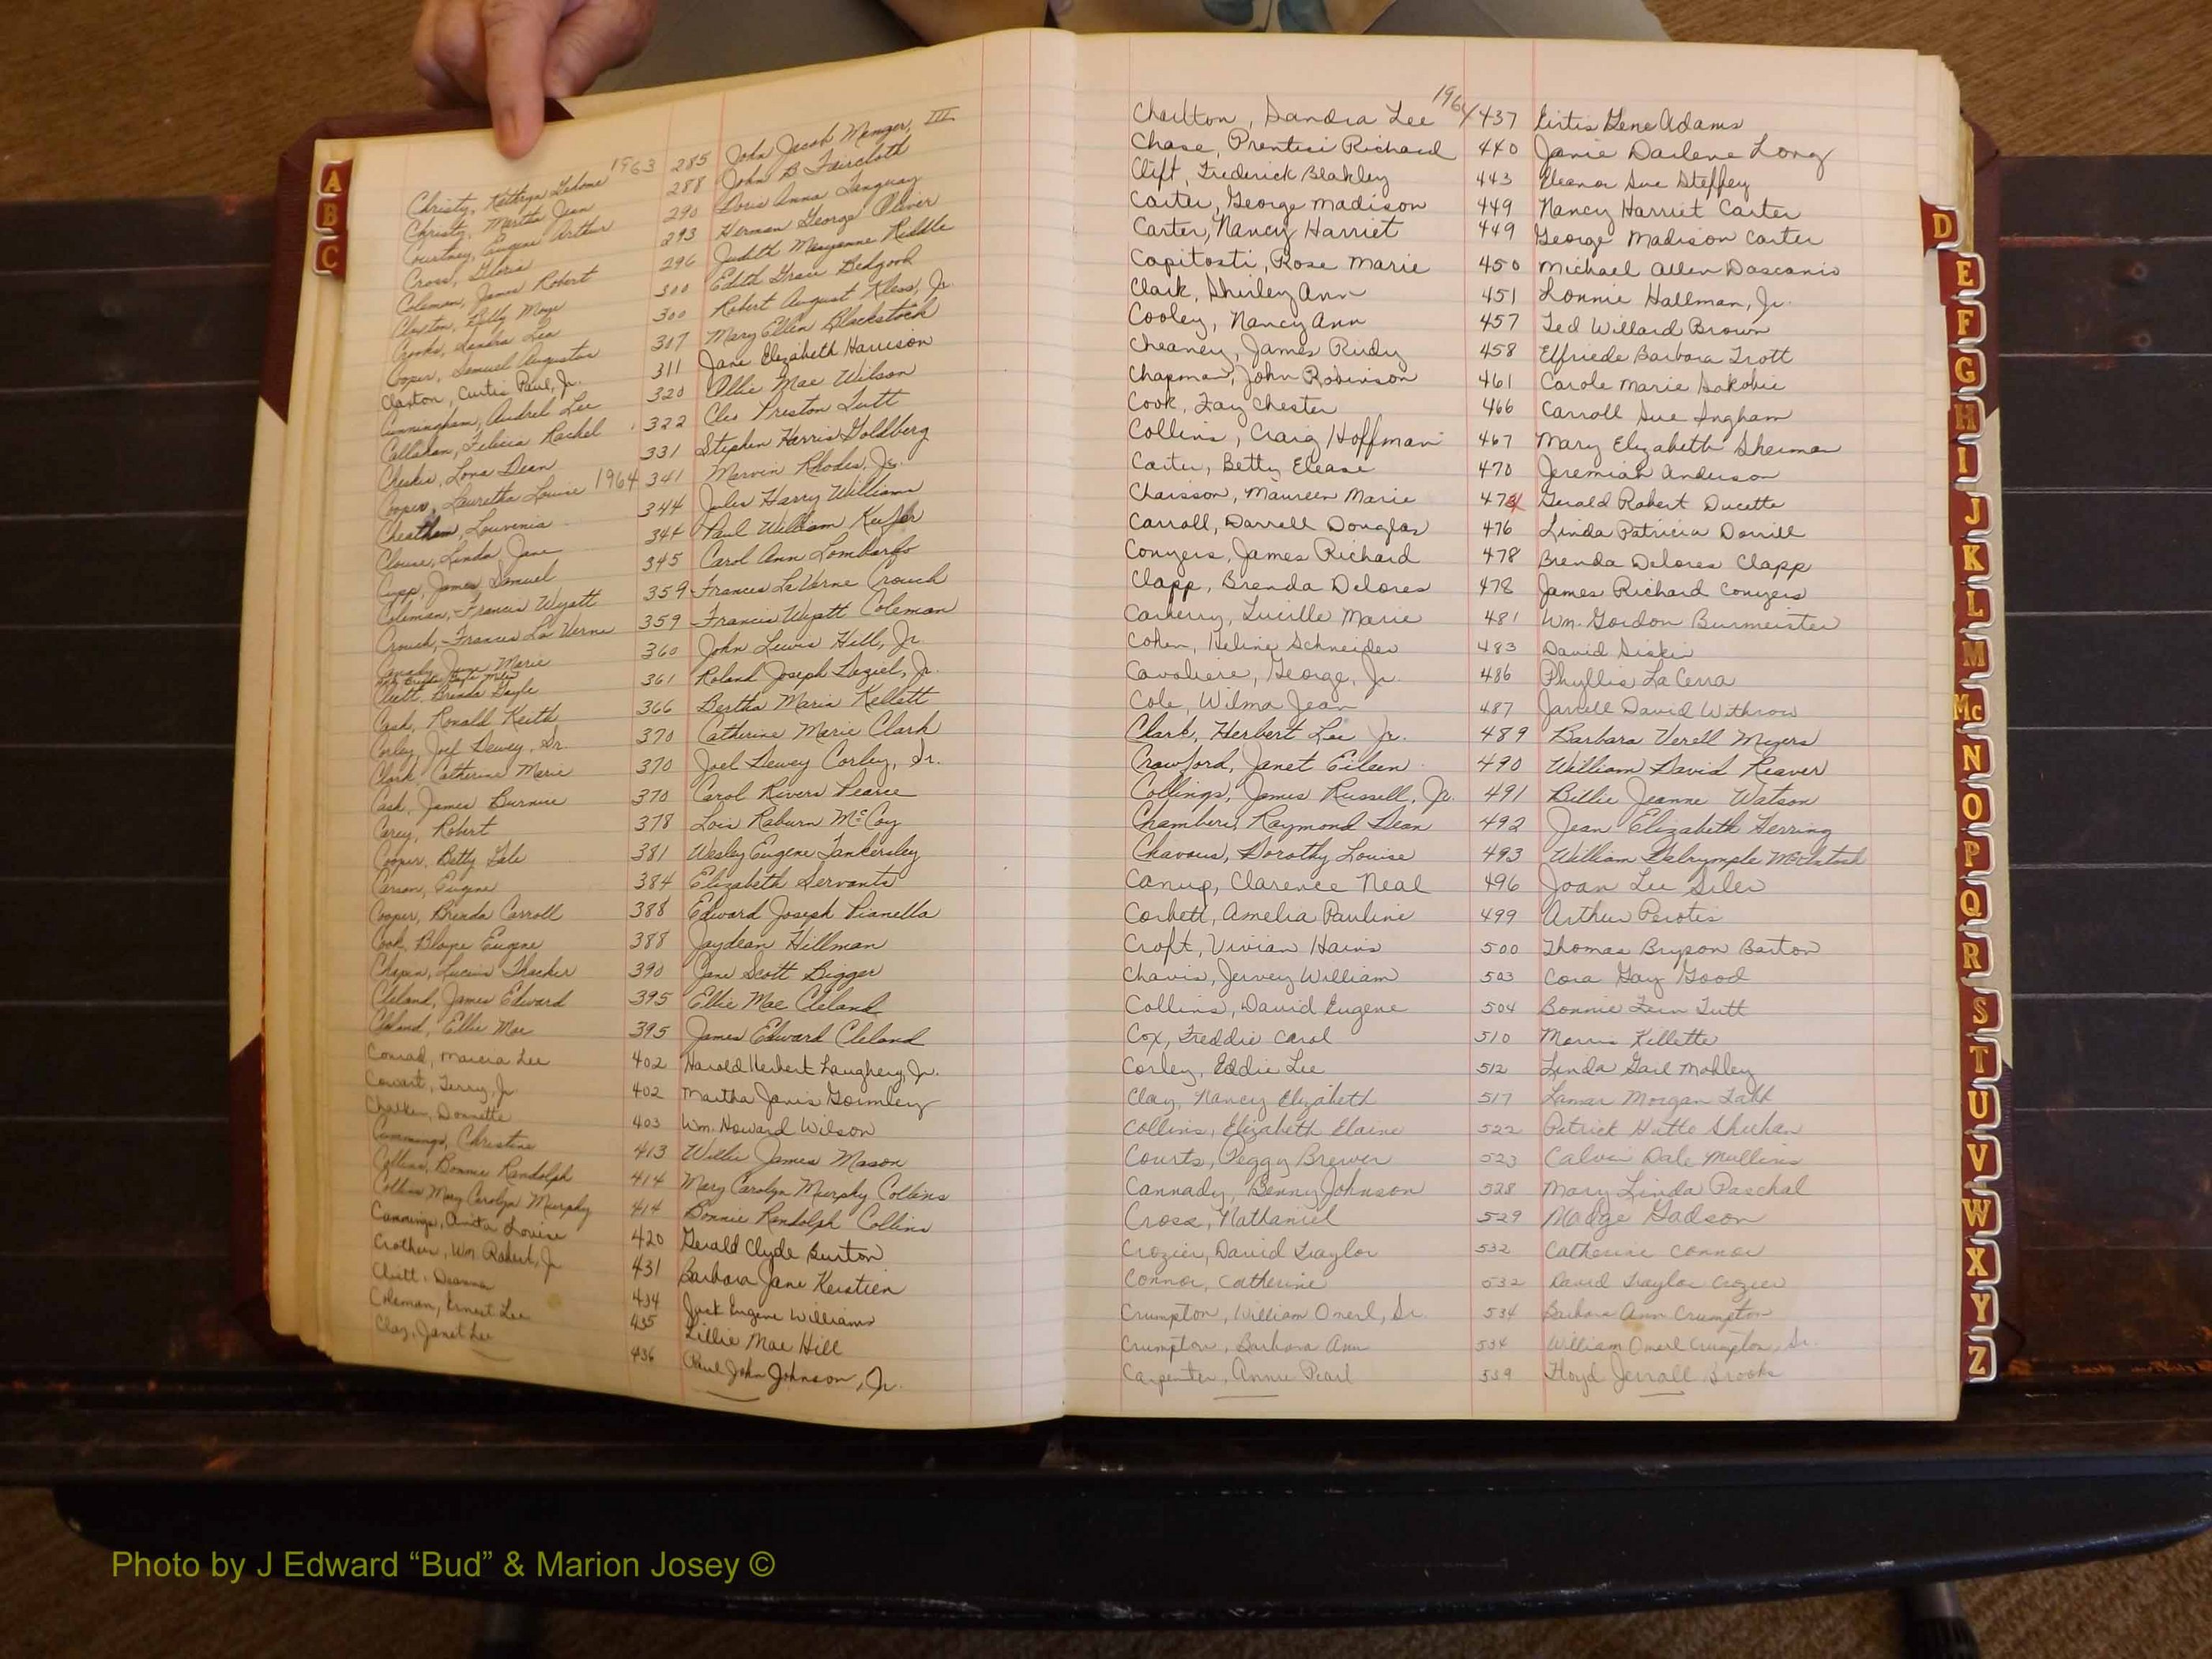 A
B
C
Christy, Kathryn 1963 285 John Jacob Menger, III
Christy, Martha Jean 288 John B Faircloth
Courtney, Eugene Arthur 290 Doris Anna Tanguay
Cross, Gloria 293 Herman George Oliver
Coleman, James Robert 296 Judith Maryanne Riddle
Claxton, Betty Maye 300 Edith Grace Bedgood
Crooks, Sandra Lea 300 Robert August Kless, Jr.
Cooper, Samuel Augustus 307 Mary Ellen Blackstock
Claxton, Curtis Paul, Jr. 311 Jane Elizabeth Harrison
Cunningham, Audrel Lee 320 Ollie Mae Wilson
Callahan, Felicia Rachel 322 Cleo Preston Tutt
Cheskis, Lona Dean 331 Stephen Harris Goldberg
Cooper, Lauretha Louise 1964 341 Marvin Rhodes, Jr.
Cheatham, Louvenia 344 Jules Harry Williams
Clouse, Linda Jane 344 Paul William Keefer
Cupp, James Samuel 345 Carol Ann Lombardo
Coleman, Francis Wyatt 359 Frances LaVerne Crouch
Crouch, Frances La Verne 359 Francis Wyatt Coleman
June Marie 360 John Lewis Hill, Jr.
Cluett, Brenda Gayle 361 Roland Joseph Daziel, Jr.
Cash, Ronald Keith 366 Bertha Maria Kellett
Corley, Joel Dewey, Sr. 370 Catherine Marie Clark
Clark, Catherine Marie 370 Joel Dewey Corley, Sr.
Cash, James Burnice 370 Carol Rivers Pearce
Carey, Robert 378 Lois Raburn McCoy
Cooper, Betty Gale 381 Wesley Eugene Tankersley
Carson, Eugene 384 Elizabeth Servante
Cooper, Brenda Carroll 388 Edward Joseph Pianella
Cook, Blayne Eugene 388 Jaydean Hillman
Chapin, Lucius Thacker 390 Jane Scott Bigger
Cleland, James Edward 395 Ellie Mae Cleland
Cleland, Ellie Mae 395 James Edward Cleland
Conrad, Marcia Lee 402 Harold Herbert Laughery, Jr.
Cowart, Terry, Jr 402 Martha Janis Gormley
Chalker, Donnette 403 Wm. Howard Wilson
Cummings, Christine 413 Willie James Mason
Collins, Bonnie Randolph 414 Mary Carolyn Murphy Collins
Collins Mary Carolyn Murphy 414 Bonnie Randolph Collins
Cummings, Anita Louise 420 Gerald Clyde Burton
Crothers, Wm Robert, Jr 431 Barbara Jane Kerstien
Cluett, Deanna 434 Jack Eugene Williams
Coleman, Ernest Lee 435 Lillie Mae Hill
Clay, Janet Lee 436 Paul John Johnson, Jr.
Charlton, Sandra Lee 1964 437 Curtis Gene Adams
Chase, Prentiss Richard 440 Janie Darlene Long
Clift, Frederick Blakley 443 Eleanor Sue Steffey
Carter, George Madison 449 Nancy Harriet Carter
Carter, Nancy Harriet 449 George Madison Carter
Capitosti, Rose Marie 450 Michael Allen Dascanio
Clark, Shirley Ann 451 Lonnie Hallman, Jr.
Cooley, Nancy Ann 457 Ted Willard Brown
Cheaney, James Rudy 458 Elfriede Barbara Trott
Chapman, John Robinson 461 Carole Marie Sakobie
Cook, Fay Chester 466 Carroll Sue Ingham
Collins, Craig Hoffman 467 Mary Elizabeth Sherman
Carter, Betty Elease 470 Jeremiah Anderson
Chaisson, Maureen Marie Gerald Robert Ducette
Carroll, Darrell Douglas 476 Linda Patricia Dorrill
Conyers, James Richard 478 Brenda Delores Clapp
Clapp, Brenda Delores 478 James Richard Conyers
Carberry, Lucille Marie 481 Wm. Gordon Burmeister
Cohen, Heline Schneider 483 David Siskin
Cavaliere, George, Jr. 486 Phyllis La Cerra
Cole, Wilma Jean 487 Jarrell David Withrow
Clark, Herbert Lee Jr. 489 Barbara Verell Myers
Crawford, Janet Eileen 490 William David Reaver
Collings, James Russell, Jr. 491 Billie Jeanne Watson
Chambers, Raymond Dean 492 Jean Elizabeth Herring
Chavous, Dorothy Louise 493 William Dalrymple McIntosh
Canup, Clarence Neal 496 Joan Lee Siler
Corbett, Amelia Pauline 499 Arthur Perotis
Croft, Vivian Hains 500 Thomas Bryson Barton
Chavis, Jervey William 503 Cora Gay Good
Collins, David Eugene 504 Bonnie Fern Tutt
Cox, Freddie Carol 510 Morris Killette
Corley, Eddie Lee 512 Linda Gail Mobley
Clay, Nancy Elizabeth 517 Lamar Morgan
Collins, Elizabeth Elaine 522 Patrick Hutto Sheehan
Courts, Peggy Brewer 523 Calvin Dale Mullinis
Cannady, Benny Johnson 528 Mary Linda Paschal
Cross, Nathaniel 529 Madge Gadson
Crozier, David Traylor 532 Catherine Connor
Connor, Catherine 532 David Traylor Crozier
Crumpton, William Onerl, Sr. 534 Barbara Ann Crumpton
Crumpton, Barbara Ann 534 William Onerl Crumpton, Sr.
Carpenter, Annie Pearl 539 Floyd Jerrall Brooks
D
E
F
G
H
I
J
K
L
M
Mc
N
O
P
Q
R
S
T
U
V
W
X
Y
Z
Photo by J Edward “Bud” & Marion Josey ©